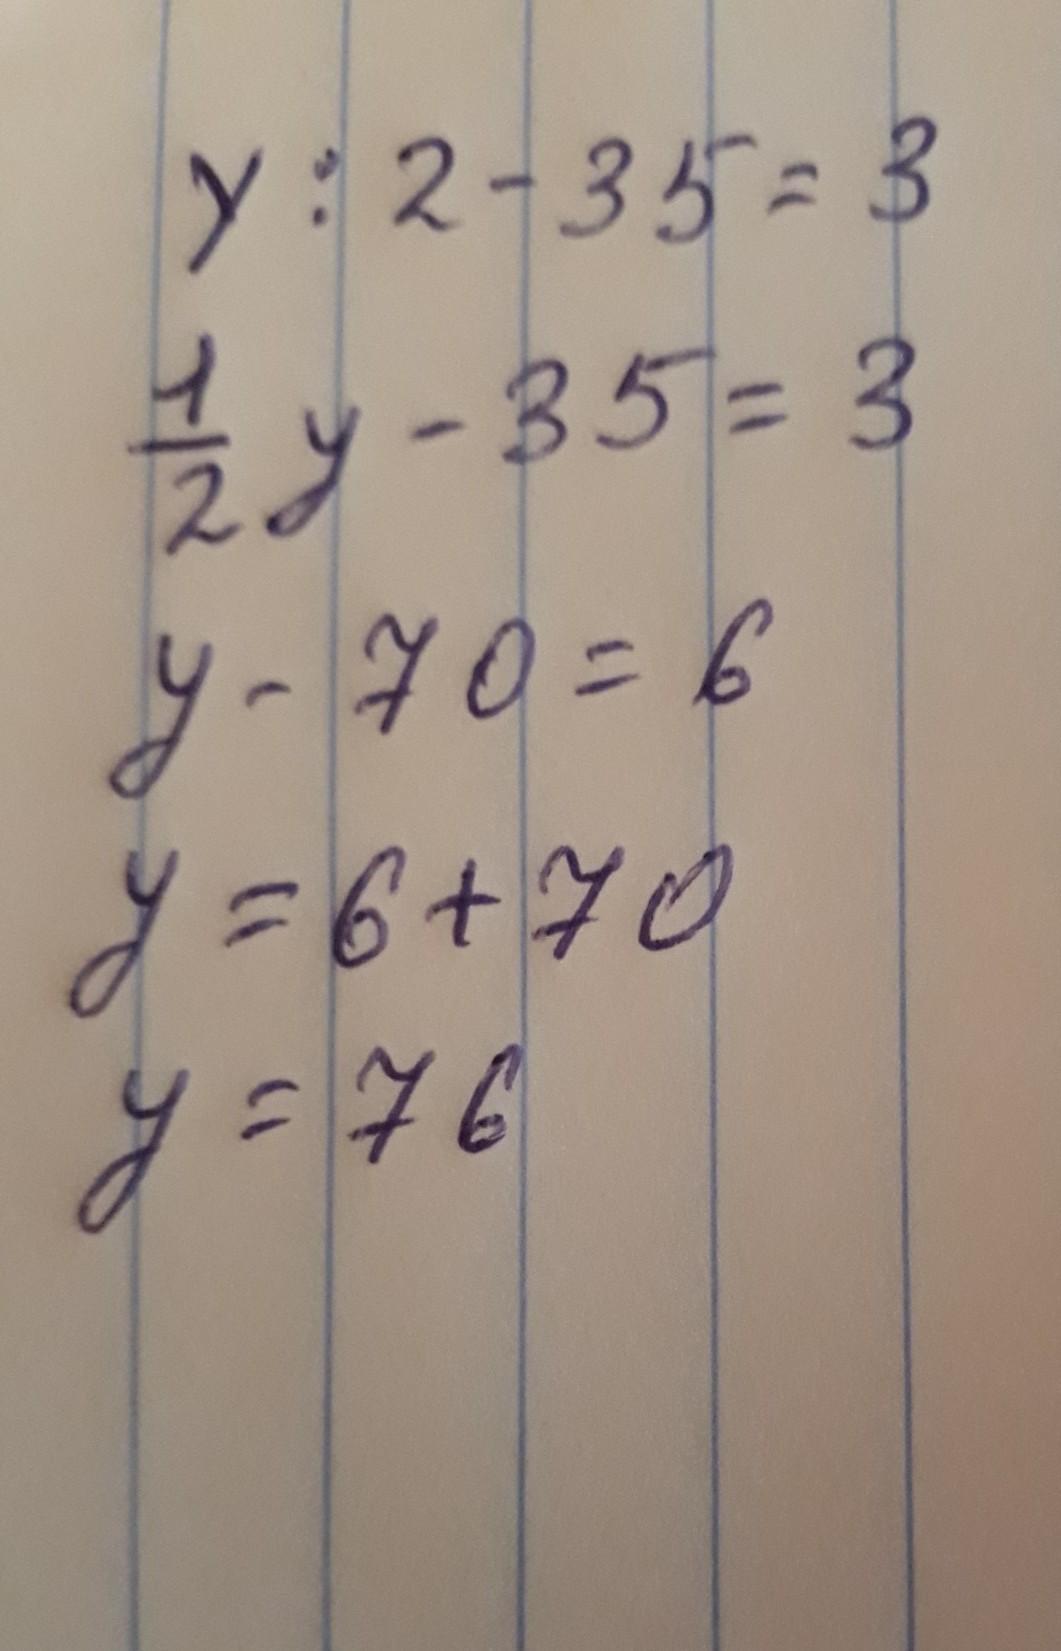 y : 2 - 35 = 3
1/2 y - 35 = 3
y - 70 = 6
y = 6 + 70
y = 76